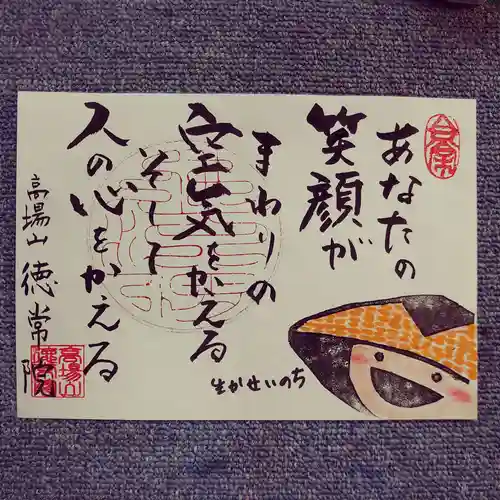 あなたの
笑顔が
まわりの
空気をかえる
そして
人の心をかえる
生かせいのち
高場山 徳常院